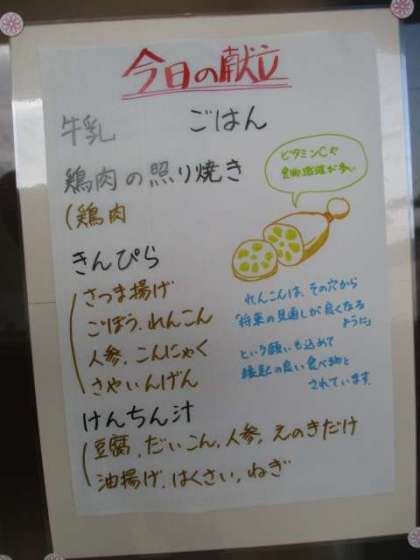 今日の献立
牛乳 ごはん
鶏肉の照り焼き
(鶏肉
きんぴら
さつま揚げ
ごぼう、れんこん
人参、こんにゃく
さやいんげん
けんちん汁
豆腐、だいこん、人参、えのきだけ
油揚げ、はくさい、ねぎ
ビタミンCや
食物繊維が多い
れんこんは、その穴から
「将来の見通しが良くなる
ように」
という願いも込めて
縁起の良い食べ物と
されています。